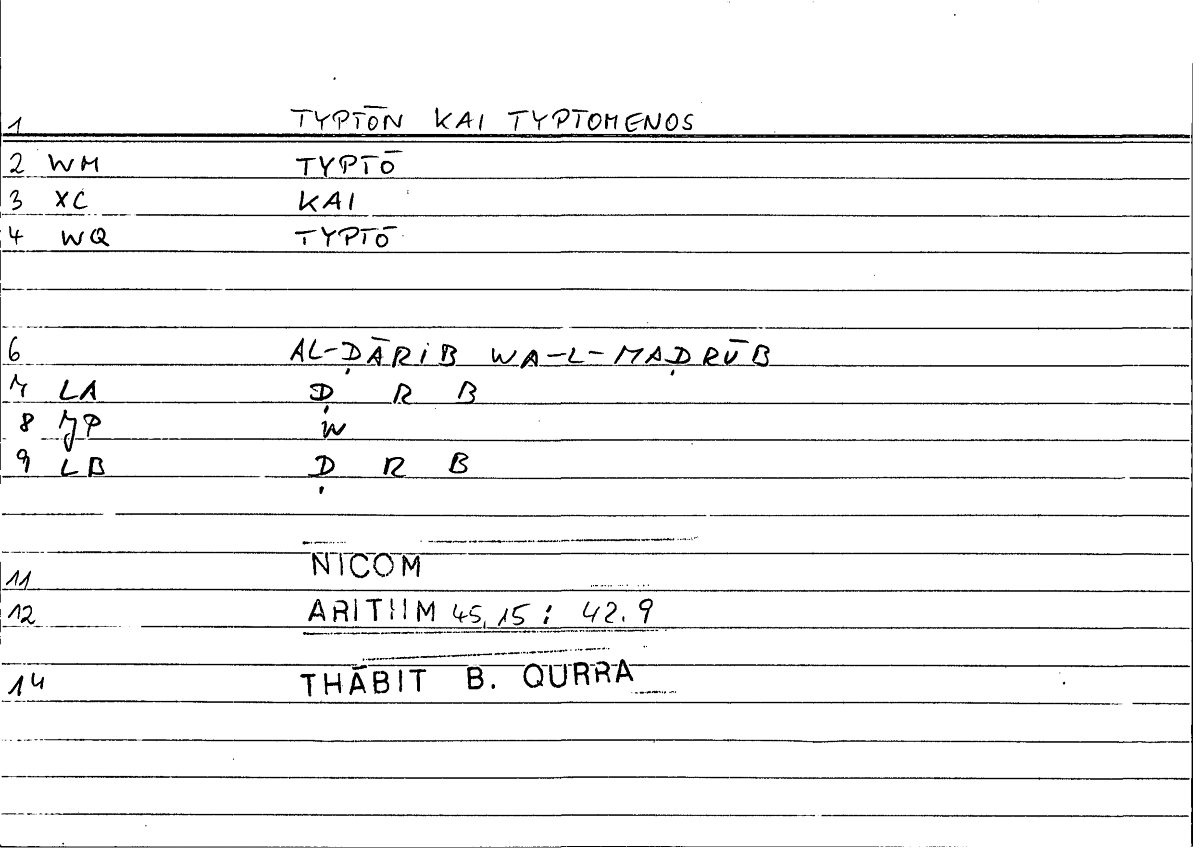 1 TYPTŌN KAI TYPTOMENOS
2 WM TYPTŌ
3 XC KAI
4 WQ TYPTŌ
6 AL-ḌĀRIB WA-L-MAḌRŪB
7 LA Ḍ R B
8 JP W
9 LB Ḍ R B
11 NICOM
12 ARITHM 45,15 : 42.9
14 THĀBIT B. QURRA